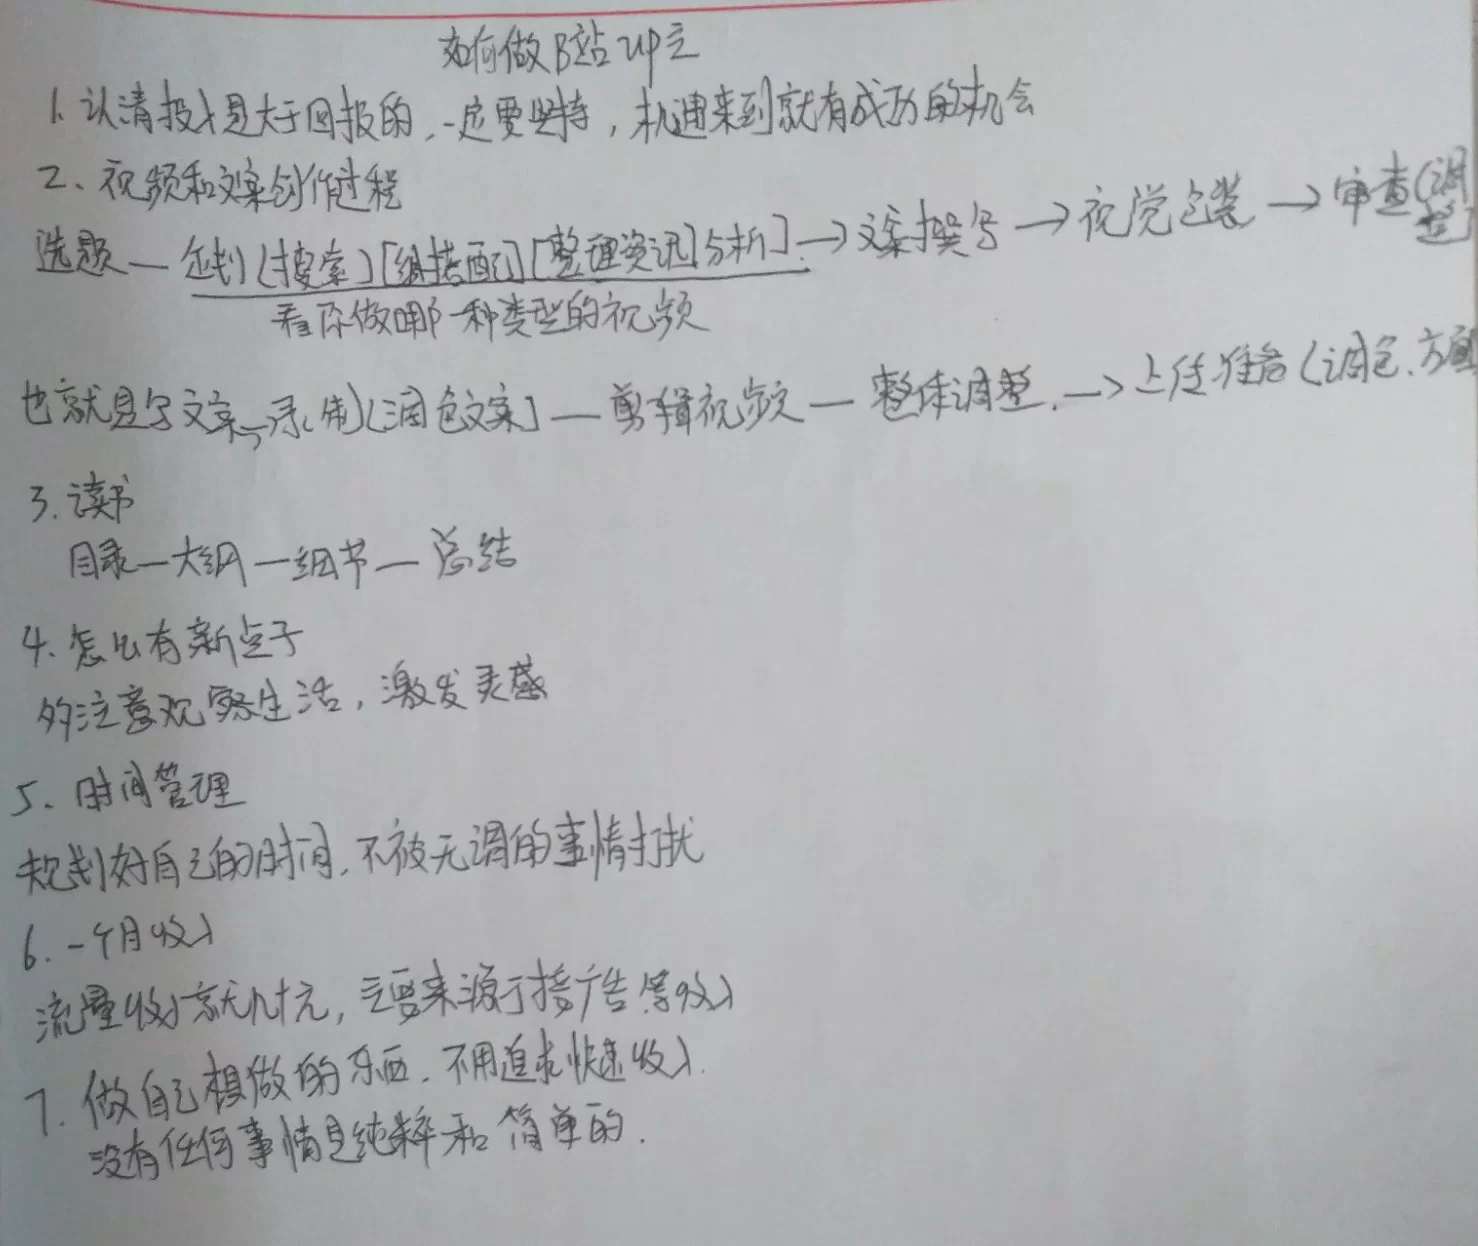 如何做B站up主
1. 认清投入是大于回报的,一定要坚持,机遇来到就有成功的机会
2、视频和文案创作过程
选题—企划(搜索)[细搭配][整理资讯][分析].→文案撰写→视觉包装→审查(调整)
看你做哪一种类型的视频
也就是写文案→录制(润色文案]—剪辑视频—整体调整.→上传准备(调色.方面
3.读书
目录—大纲—细节—总结
4.怎么有新点子
多注意观察生活,激发灵感
5、时间管理
规划好自己的时间,不被无谓的事情打扰
6.一个月收入
流量收入就几十元,主要来源于接广告等收入
7.做自己想做的东西.不用追求快速收入.
没有任何事情是纯粹和简单的.